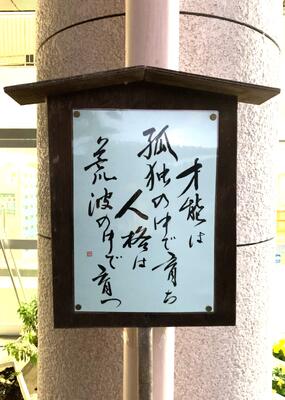 才能は
孤独の中で育ち
人格は
荒波の中で育つ